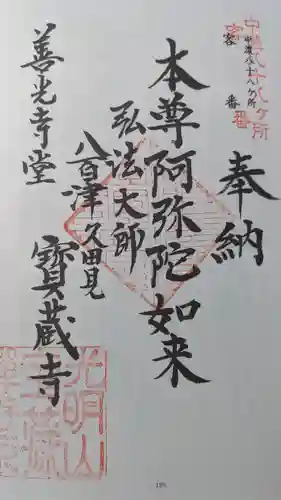 奉納
本尊阿弥陀如来
弘法大師
八百津久田見
寶蔵寺
善光寺堂
客番
光明山